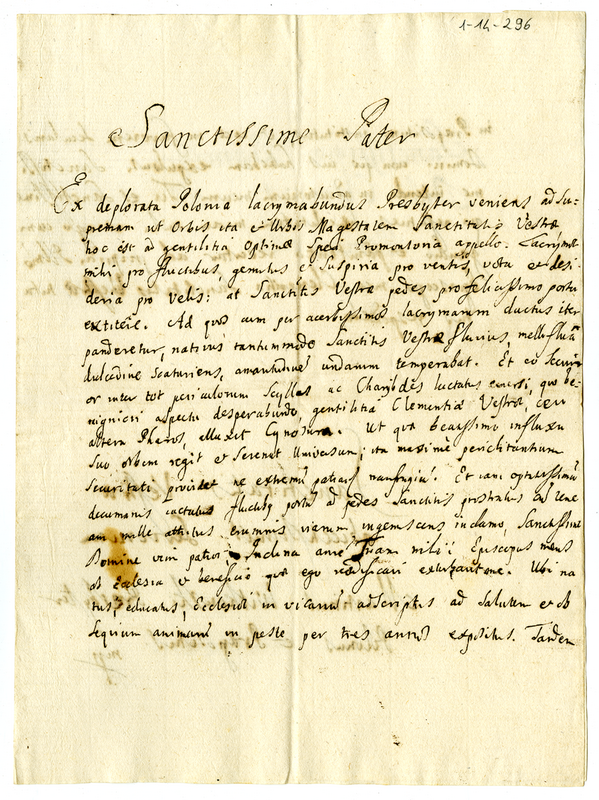 1-14-296
Sanctissime Pater
Ex deplorata Polonia lacrymabundus Presbyter veniens ad su-
premam ut Orbis ita et Urbis Magestatem Sanctitatis Vestræ
hoc est ad gentilitia optimæ Spei Promontoria appello. Lacrymæ
mihi pro fluctibus, gemitus et Suspiria pro ventis, vota et desi
deria pro velis: at Sanctitis Vestræ pedes pro felicissimo portu
extitere. Ad quos cum per acerbissimos lacrymarum ductus iter
panderetur, nativus tantummodo Sanctitis Vestræ fluvius, mellifluâ
dulcedine scaturiens, amaritudinem undarum temperabat. Et eo securi
or inter tot periculorum Scyllas ac Charybdes luctatus quo be-
nigniori aspectu desperabundo, gentilitia Clementiæ Vestræ, ceu
altera Pharos, alluxit Cynosura. Ut qua beatissimo influxu
suo orbem regit et serenat Universum; ita maximè periclitantium
securitati providet ne extremum patiar naufragium. Et iam optatissimum
decumanis iactatus fluctibus portum ad pedes Sanctitis prostratus
mille attritus erumnis viarum ingemiscens inclamo, Sanctissime
Domine vim patior Inclina aurem Tuam mihi Episcopus meus
ab Ecclesia et beneficio quo ego Ubi na
tus, educatus, Ecclesiæ in vicarium adscriptus ad salutem et ob
sequium animarum in peste per tres annos expositus. Tandem